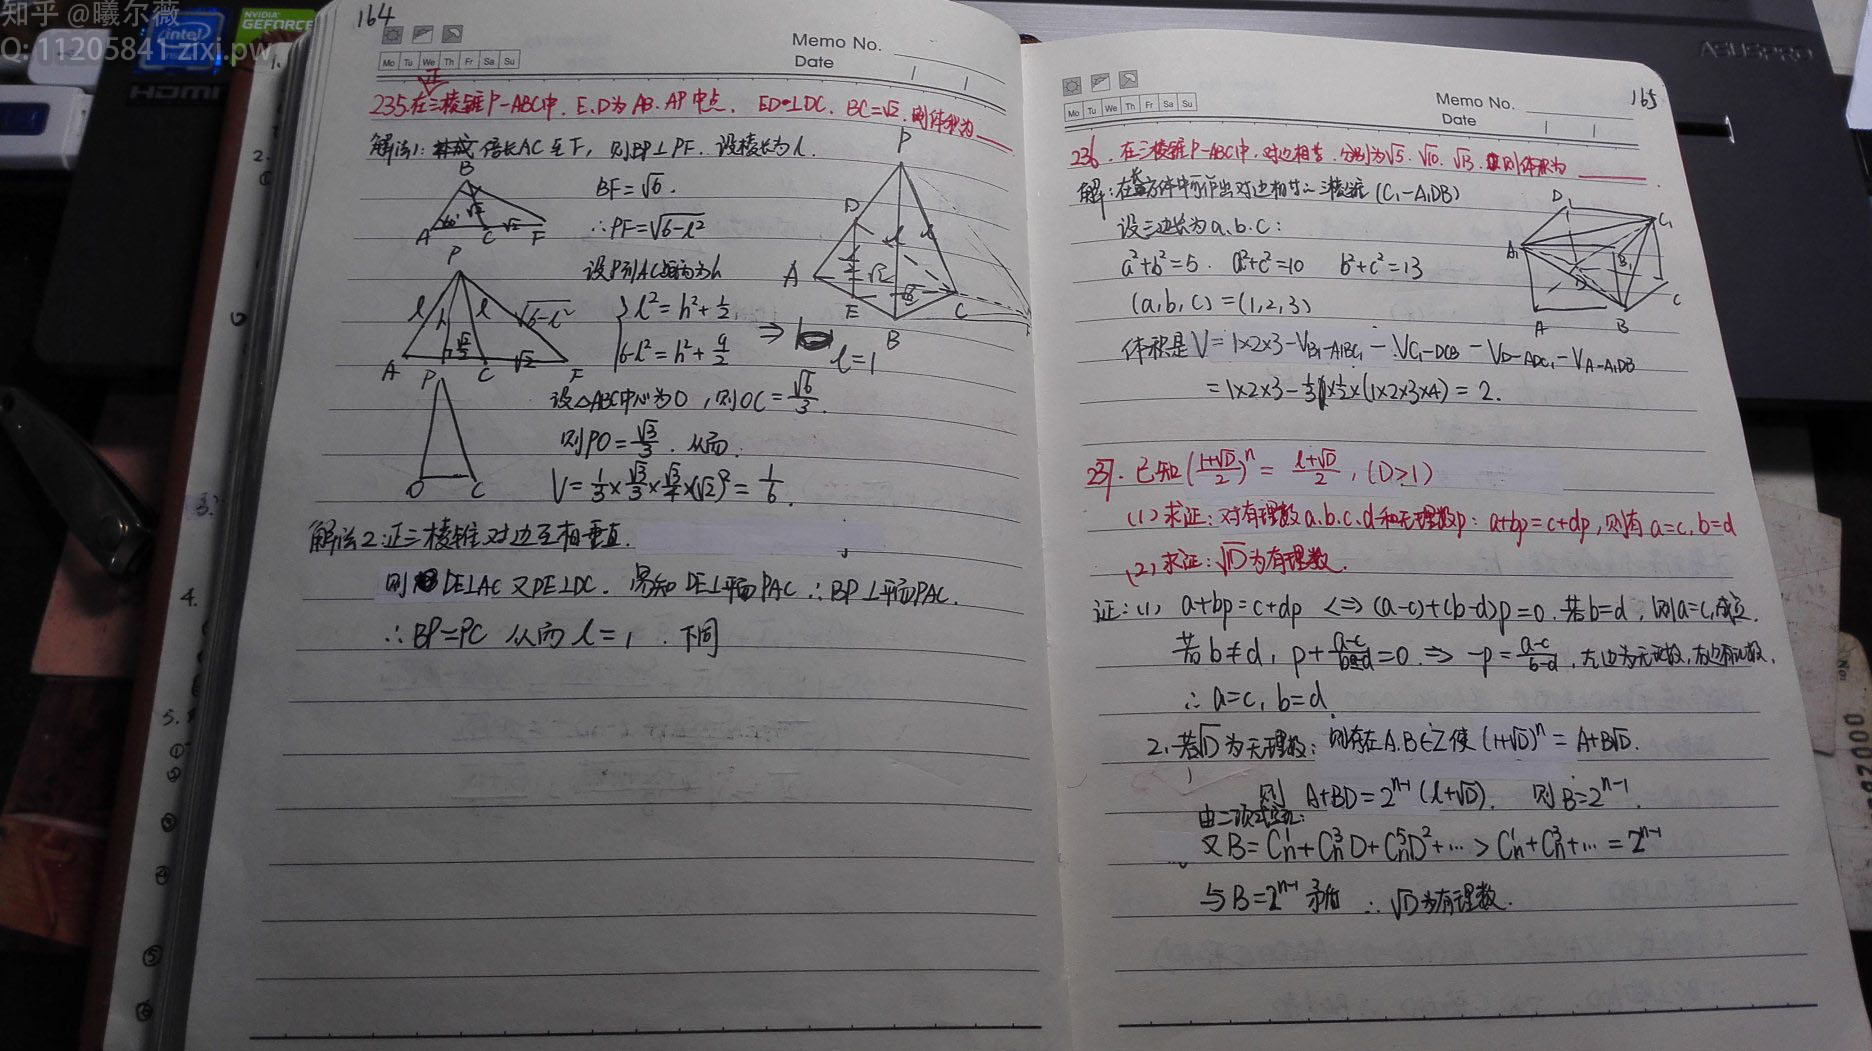 知乎 @曦尔薇
Q: 11205841 zixi.pw
164
Memo No.
Date
Mo Tu We Th Fr Sa Su
正
235.在三棱锥P-ABC中, E.D为AB.AP中点, ED⊥DC, BC=√2, 则体积为
解法1: 倍长AC至F, 则BP⊥PF. 设棱长为l.
BF=√6.
∴PF=√(6-l²)
设P到AC距离为h
l²=h²+1/2
6-l²=h²+9/2
⇒ l=1
设△ABC中心为O, 则OC=√6/3.
则PO=√3/3. 从而.
V=1/3×√3/3×√3/4×(√2)²=1/6.
解法2:正三棱锥对边互相垂直.
则DE⊥AC 又DE⊥DC. 易知 DE⊥平面PAC ∴BP⊥平面PAC.
∴BP=PC 从而 l=1, 下同
165
Memo No.
Date
Mo Tu We Th Fr Sa Su
236. 在三棱锥P-ABC中, 对边相等, 分别为√5. √10. √13. 则体积为
解:在长方体中可作出对边相等三棱锥(C₁-A₁DB)
设三边长为a.b.c:
a²+b²=5. a²+c²=10 b²+c²=13
(a,b,c)=(1,2,3)
体积是V=1×2×3-V_{B₁-A₁BC₁}-V_{C₁-DCB}-V_{D-ADC₁}-V_{A-A₁DB}
=1×2×3-1/3×1/2×(1×2×3×4)=2.
237. 已知((1+√D)/2)ⁿ=(l+√D)/2, (D>1)
(1)求证:对有理数a.b.c.d和无理数p: a+bp=c+dp, 则有a=c, b=d
(2)求证:√D为有理数.
证:(1) a+bp=c+dp <=> (a-c)+(b-d)p=0. 若b=d, 则a=c,成立.
若b≠d, p+(a-c)/(b-d)=0. ⇒ -p=(a-c)/(b-d), 左边为无理数,右边有理数.
∴ a=c, b=d
2. 若√D为无理数: 则存在A.B∈Z使(1+√D)ⁿ=A+B√D.
则 A+BD=2ⁿ⁻¹(l+√D). 则B=2ⁿ⁻¹.
由二项式定理:
又B=Cn¹+Cn³D+Cn⁵D²+…>Cn¹+Cn³+…=2ⁿ⁻¹
与B=2ⁿ⁻¹矛盾 ∴√D为有理数.